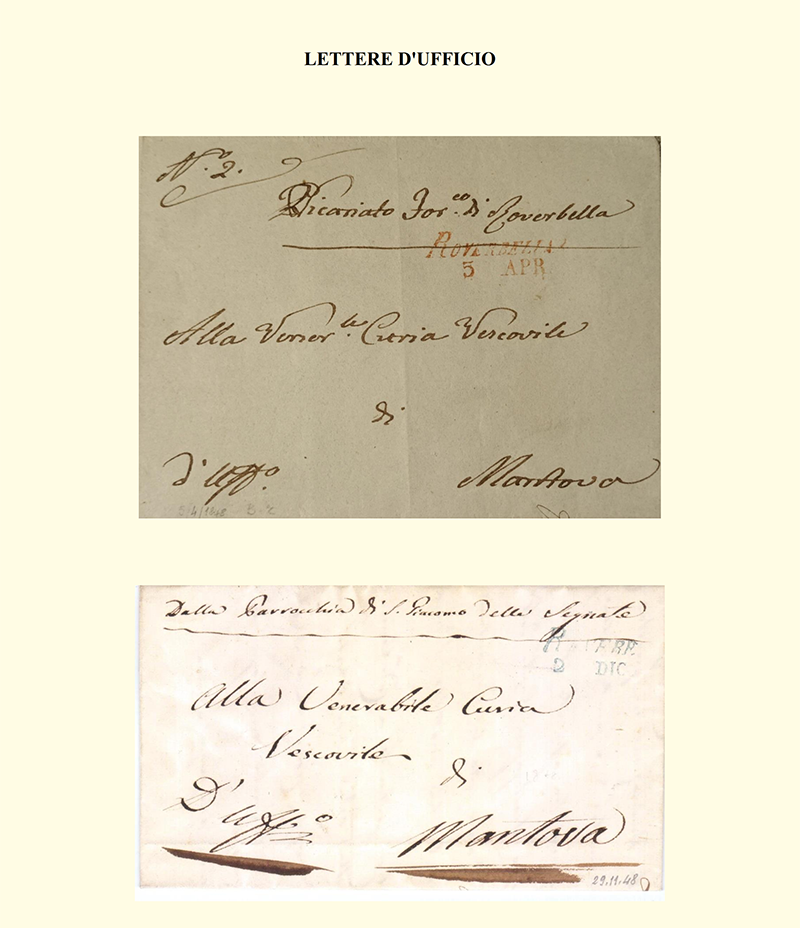 LETTERE D'UFFICIO
N.º 2.
Vicariato For.co di Roverbella
ROVERBELLA
3 APR
Alla Vener.le Curia Vescovile
di
d'Uff.o
Mantova
Dalla Parrocchia di S. Giacomo delle Segnate
REVERE
2 DIC
Alla Venerabile Curia
Vescovile
di
D'Uff.o
Mantova
29.11.48